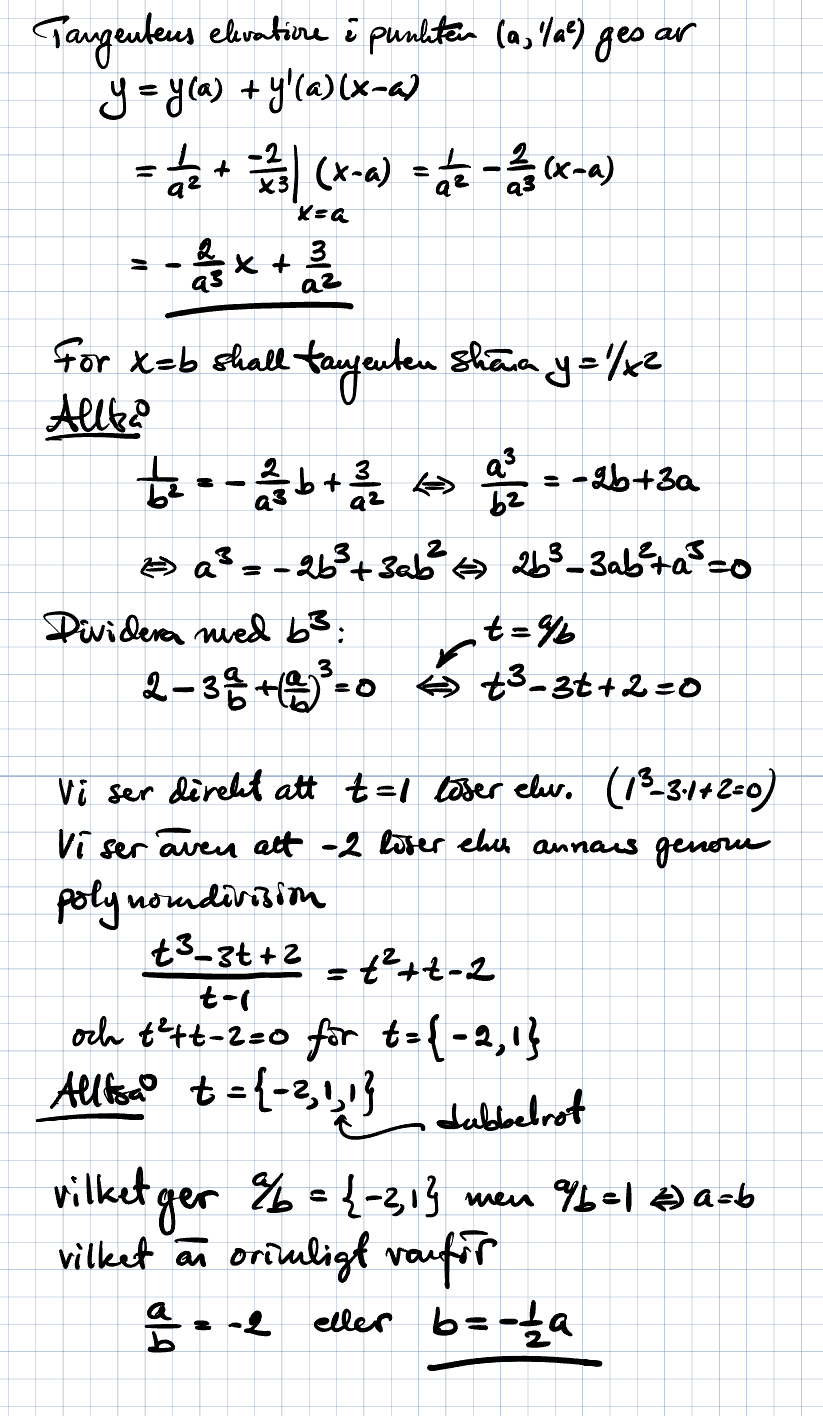 Tangentens ekvation i punkten (a, 1/a²) ges av
y = y(a) + y'(a)(x-a)
= 1/a² + -2/x³ |x=a (x-a) = 1/a² - 2/a³ (x-a)
= - 2/a³ x + 3/a²
För x=b skall tangenten skära y = 1/x²
Alltså
1/b² = - 2/a³ b + 3/a² ⇔ a³/b² = -2b+3a
⇔ a³ = -2b³ + 3ab² ⇔ 2b³ - 3ab² + a³ = 0
Dividera med b³: t = a/b
2 - 3 a/b + (a/b)³ = 0 ⇔ t³ - 3t + 2 = 0
Vi ser direkt att t = 1 löser ekv. (1³-3·1+2=0)
Vi ser även att -2 löser ekv annars genom
polynomdivision
t³-3t+2 / t-1 = t²+t-2
och t²+t-2=0 för t={-2,1}
Alltså t = {-2,1,1}
dubbelrot
vilket ger a/b = {-2,1} men a/b=1 ⇔ a=b
vilket är orimligt varför
a/b = -2 eller b = -1/2 a